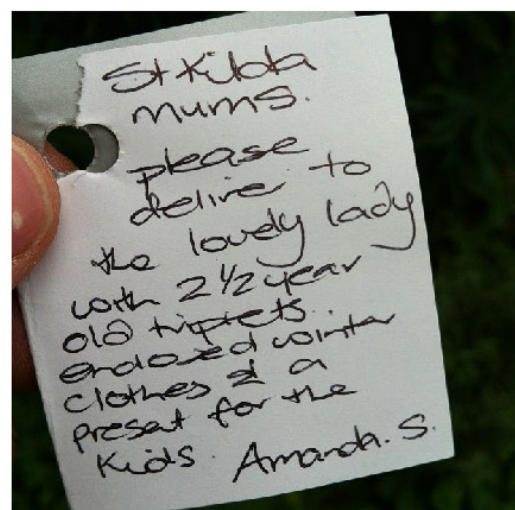 St Kilda
mums.
please
deliver to
the lovely lady
with 2 1/2 year
old triplets.
enclosed winter
clothes & a
present for the
kids. Amanda. S.